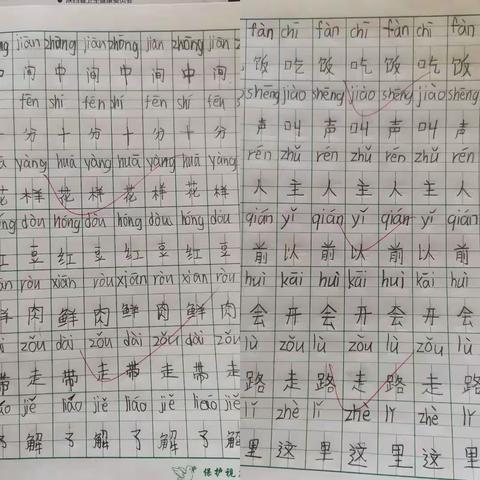 jiān zhōng jiān zhōng jiān zhōng jiān
间 中 间 中 间 中 间
fēn shí fēn shí fēn shí
分 十 分 十 分 十
yàng huā yàng huā yàng huā yàng
花 样 花 样 花 样 花 样
dòu hóng dòu hóng dòu hóng dòu
豆 红 豆 红 豆 红 豆
ròu xiān ròu xiān ròu xiān ròu
鲜 肉 鲜 肉 鲜 肉 鲜 肉
zǒu dài zǒu dài zǒu dài zǒu
带 走 带 走 带 走 带 走
jiě liǎo jiě liáo jiě liǎo jiě
了 解 了 解 了 解 了 解
保护视
fàn chī fàn chī fàn chī fàn
饭 吃 饭 吃 饭 吃 饭
shēng jiào shēng jiào shēng jiào shēng
声 叫 声 叫 声 叫 声
rén zhǔ rén zhǔ rén zhǔ rén
人 主 人 主 人 主 人
qián yǐ qián yǐ qián yǐ qián
前 以 前 以 前 以 前
huì kāi huì kāi huì kāi huì
会 开 会 开 会 开 会
lù zǒu lù zǒu lù zǒu lù
路 走 路 走 路 走 路
lǐ zhè lǐ zhè lǐ zhè lǐ
里 这 里 这 里 这 里